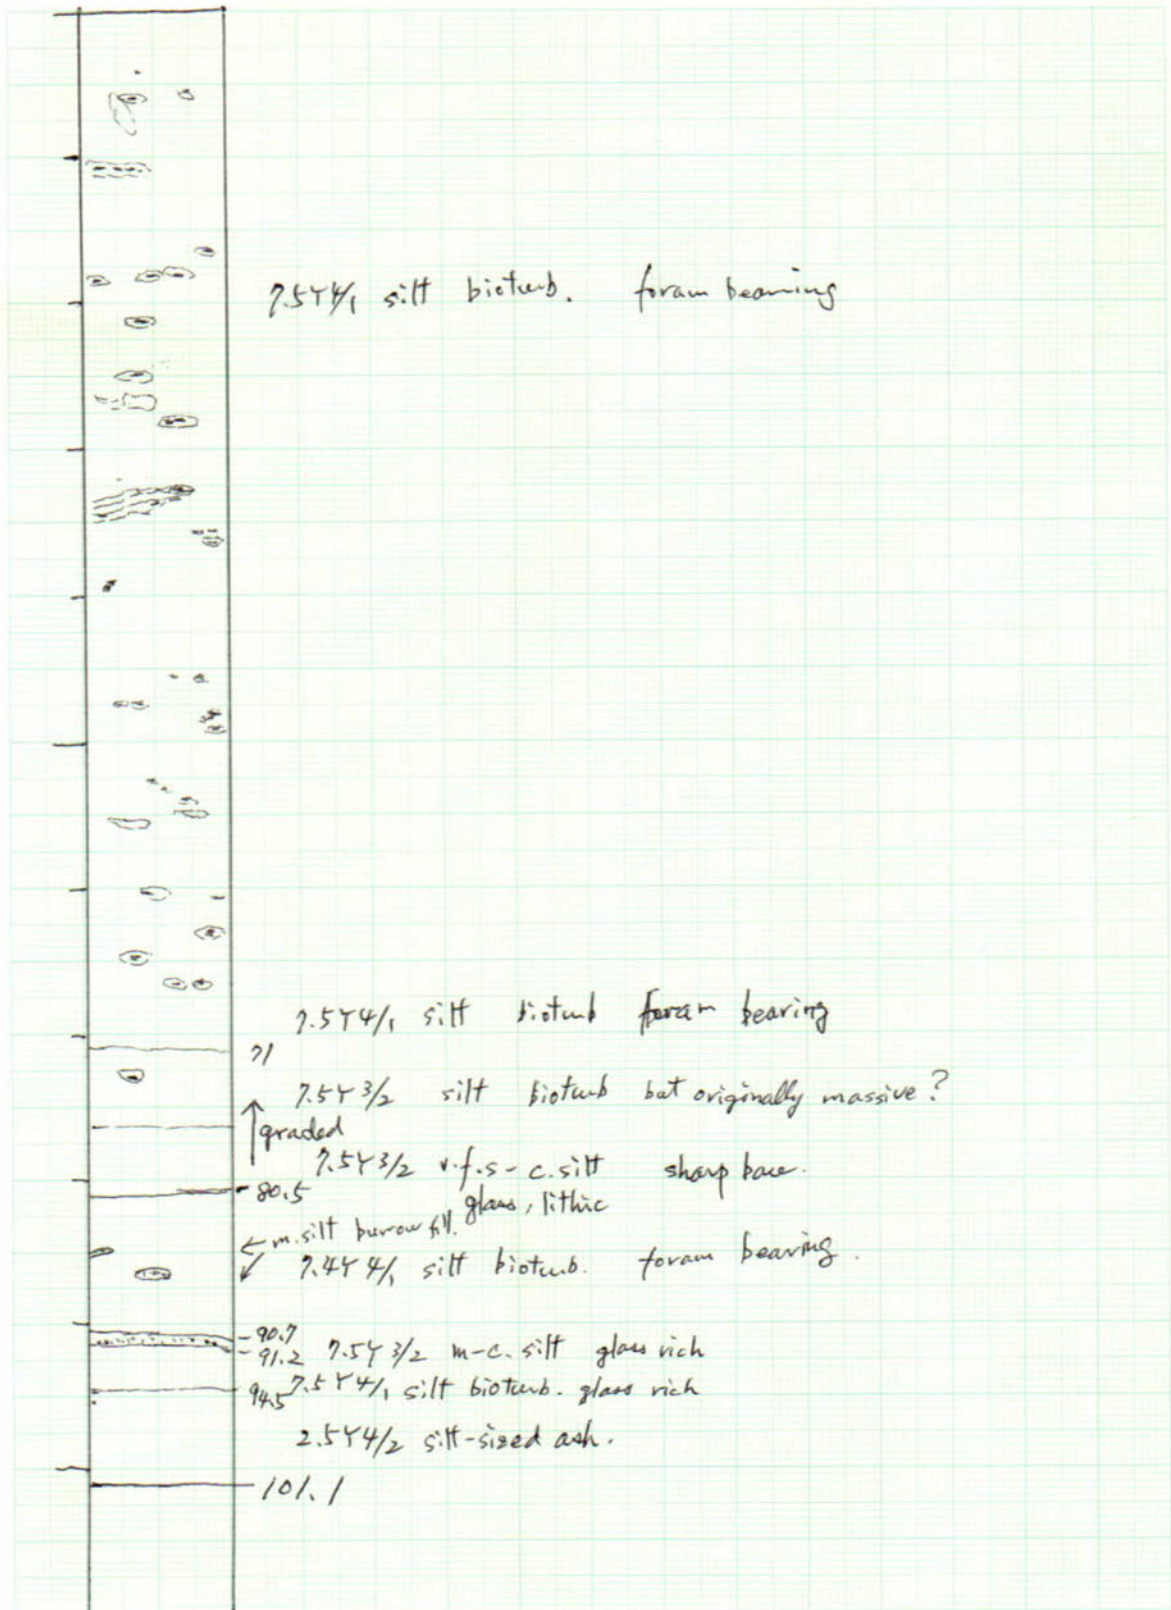 7.5Y4/1 silt bioturb. foram bearing
7.5Y4/1 silt bioturb foram bearing
71
7.5Y 3/2 silt bioturb but originally massive?
graded
7.5Y 3/2 v.f.s - c.silt sharp base.
80.5
glass, lithic
← m.silt burrow fill.
7.4Y 4/1 silt bioturb. foram bearing.
90.7
91.2 7.5Y 3/2 m-c. silt glass rich
94.5 7.5Y4/1 silt bioturb. glass rich
2.5Y4/2 silt-sized ash.
101.1